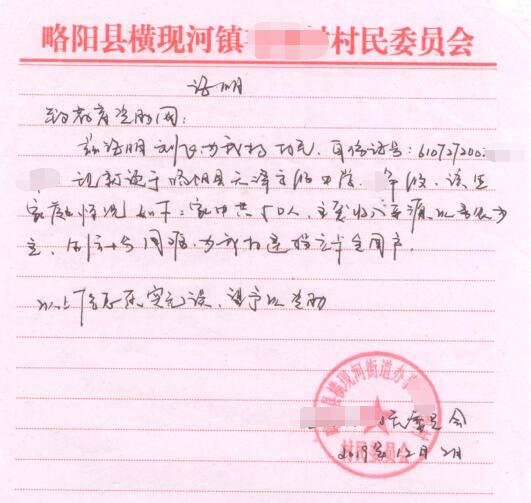 略阳县横现河镇 村村民委员会
证明
致教育资助网:
兹证明刘 为我村村民,身份证号:610727200
现就读于略阳县天津高级中学, 年级,该生
家庭情况如下:家中共5口人,主要收入来源以务农为
主, 困难,为我村建档立卡贫困户。
以上信息属实无误,望予以资助
民委员会
2019年12月2日
县横现河街道办
村民委员会